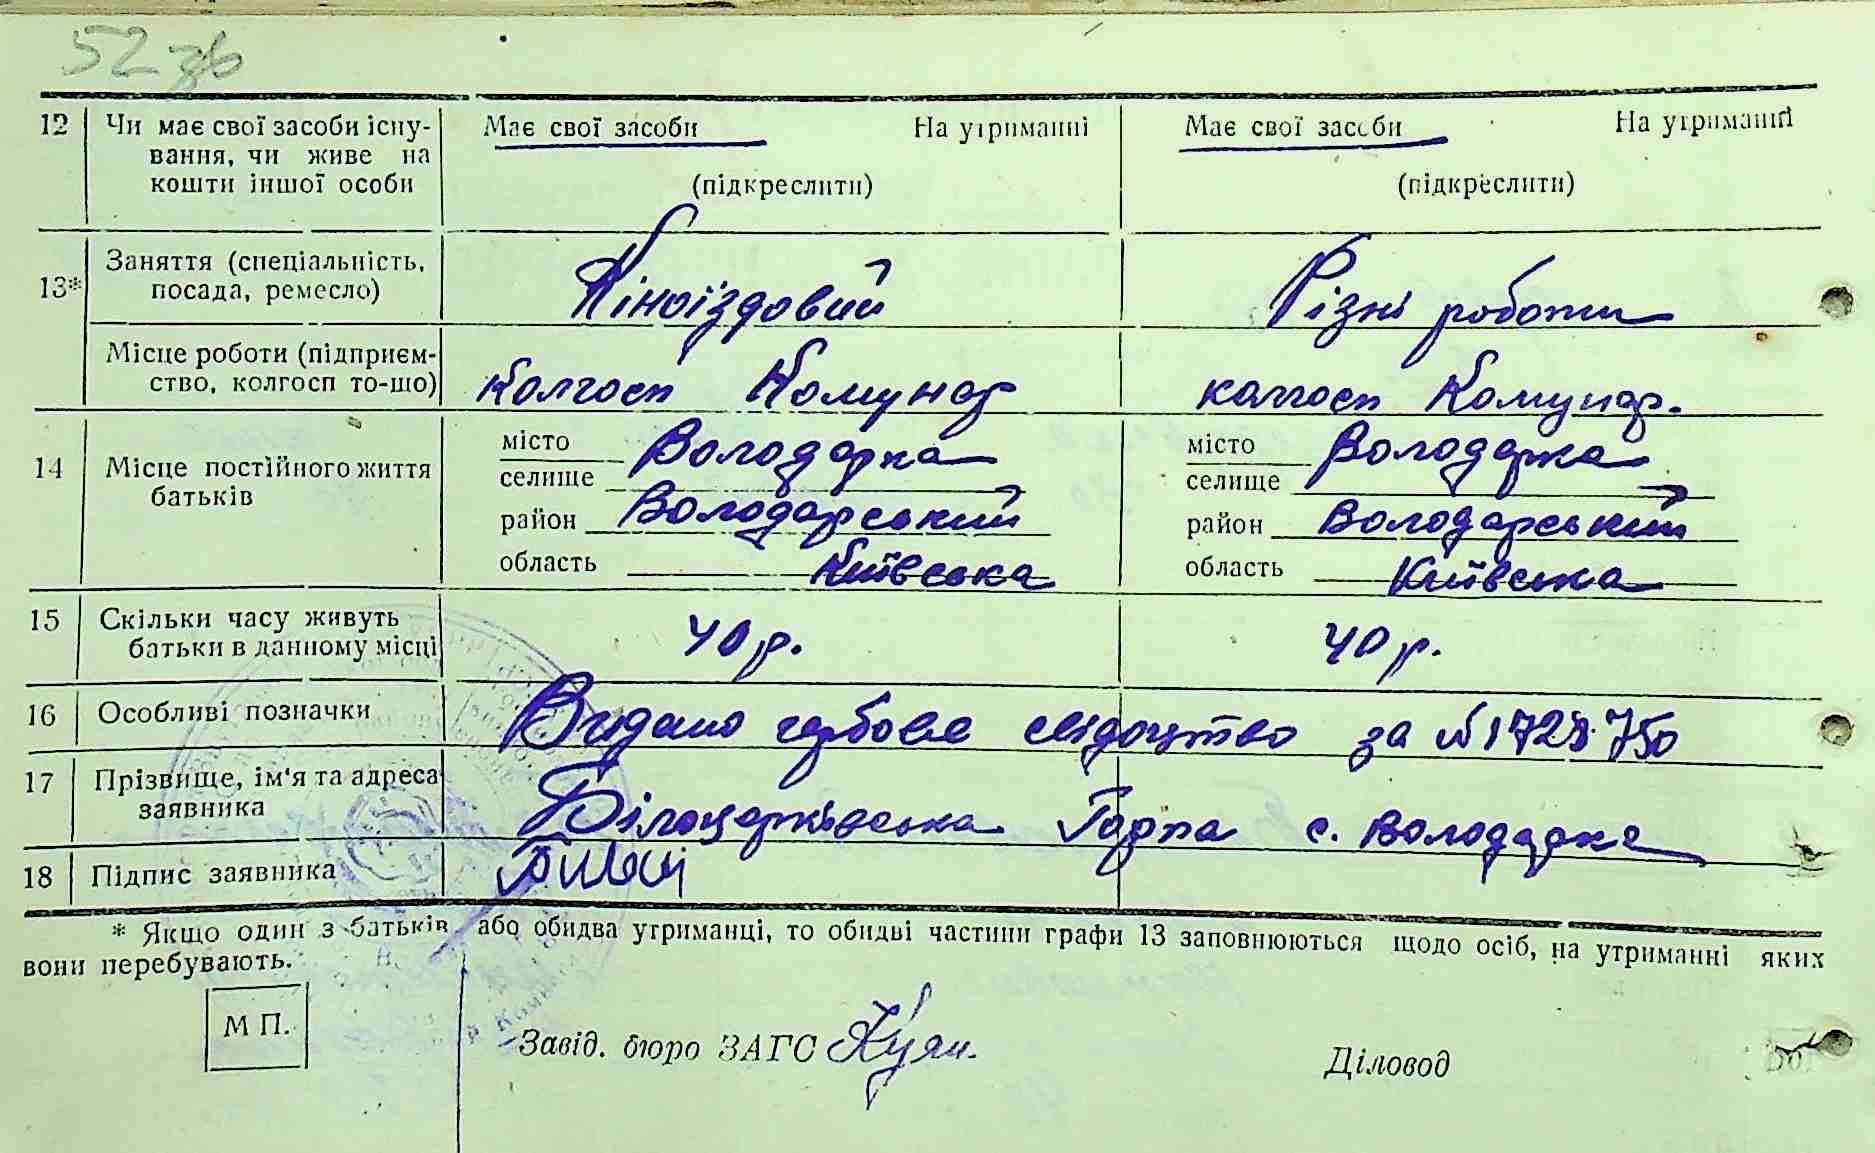 52 зв
12 Чи має свої засоби існу- Має свої засоби На утриманні Має свої засоби На утриманні
вання, чи живе на
кошти іншої особи (підкреслити) (підкреслити)
13* Заняття (спеціальність, Кіноїздовий Різні роботи
посада, ремесло)
Місце роботи (підприєм- Колгосп Комунар колгосп Комунар.
ство, колгосп то-що)
14 Місце постійного життя місто Володарка місто Володарка
батьків селище селище
район Володарський район Володарський
область Київська область Київська
15 Скільки часу живуть 40 р. 40 р.
батьки в данному місці
16 Особливі позначки Видано гербове свідоцтво за № 1728750
17 Прізвище, ім'я та адреса Білоцерківська Гарпа с. Володарка
заявника
18 Підпис заявника
* Якщо один з батьків або обидва утриманці, то обидві частини графи 13 заповнюються щодо осіб, на утриманні яких
вони перебувають.
М П.
Завід. бюро ЗАГС
Діловод